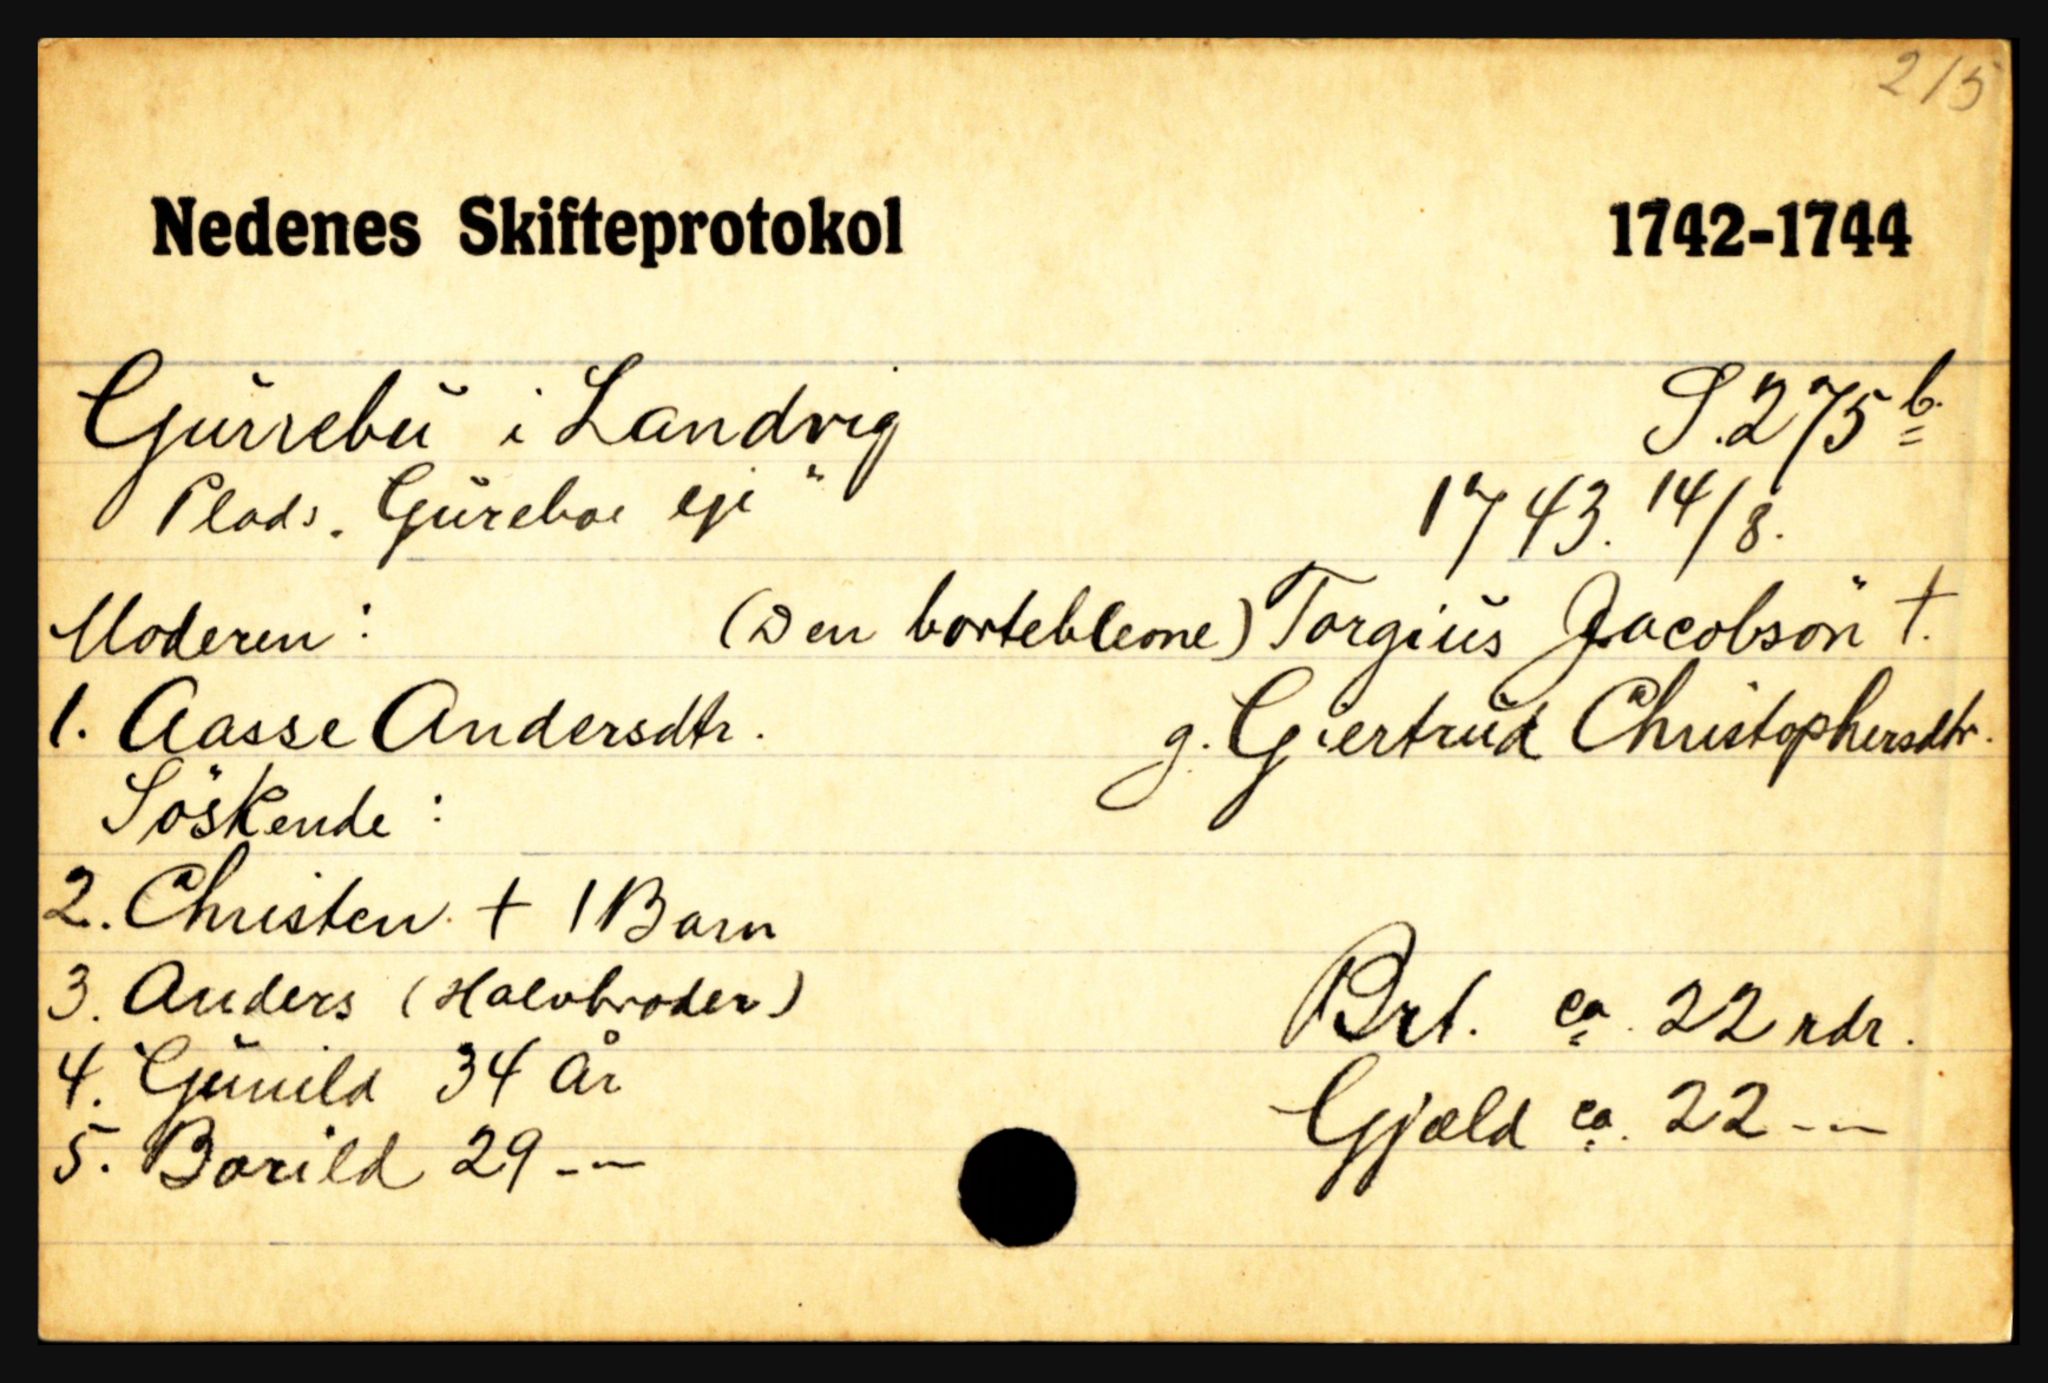 215
Nedenes Skifteprotokol 1742-1744
Gurrebu i Landvig S. 275 b.
Plads. Gureboe eje" 1743. 14/8.
Moderen: (Den bortebleone) Torgius Jacobsøn †.
1. Aasse Andersdtr. g. Giertrud Christophersdtr.
Søskende:
2. Christen † 1 Barn
3. Anders (Halvbroder)
Brt. ca. 22 rdr.
4. Gunild 34 år
Gjæld ca. 22 - -
5. Borild 29 - -